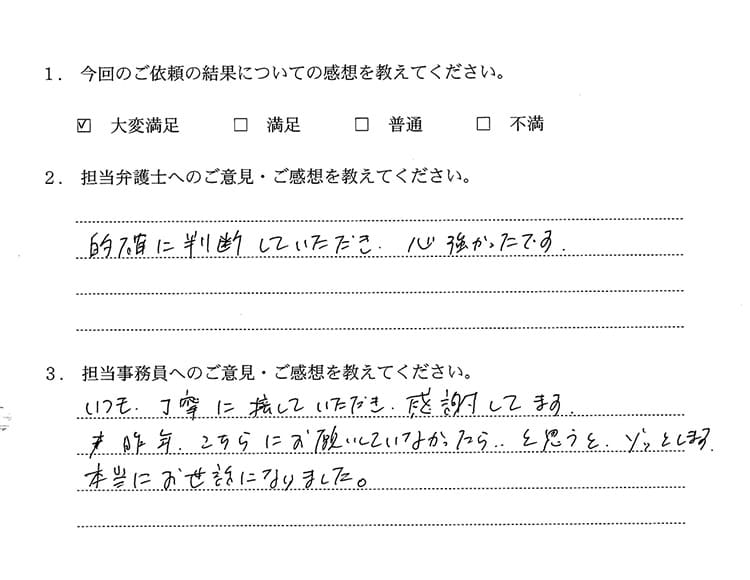 1. 今回のご依頼の結果についての感想を教えてください。
☑ 大変満足 □ 満足 □ 普通 □ 不満
2. 担当弁護士へのご意見・ご感想を教えてください。
的確に判断していただき、心強かったです。
3. 担当事務員へのご意見・ご感想を教えてください。
いつも、丁寧に接していただき、感謝してます。
昨年、こちらにお願いしていなかったら‥と思うと、ゾッとします。
本当にお世話になりました。